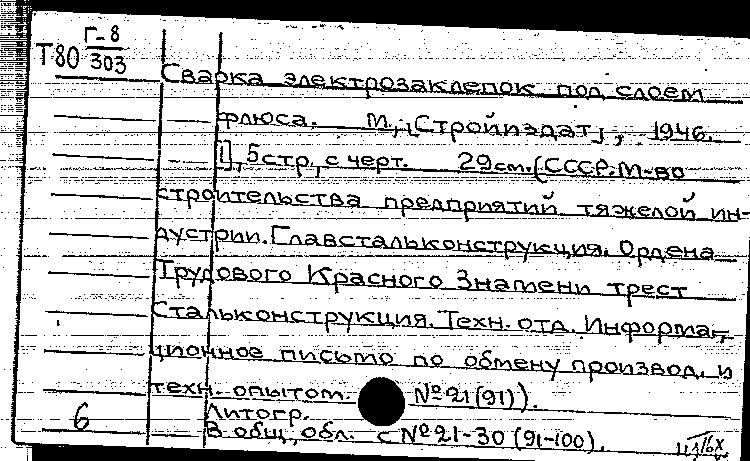 Т80 Г-8/303
Сварка электрозаклепок под слоем
флюса. М., [Стройиздат], 1946.
[1], 5стр., с черт. 29см. (СССР. М-во
строительства предприятий тяжелой ин-
дустрии. Главстальконструкция. Ордена
Трудового Красного Знамени трест
Стальконструкция. Техн. отд. Информа-
ционное письмо по обмену производ. и
техн. опытом. № 21 (91)).
Литогр.
6 В общ. обл. с № 21-30 (91-100).